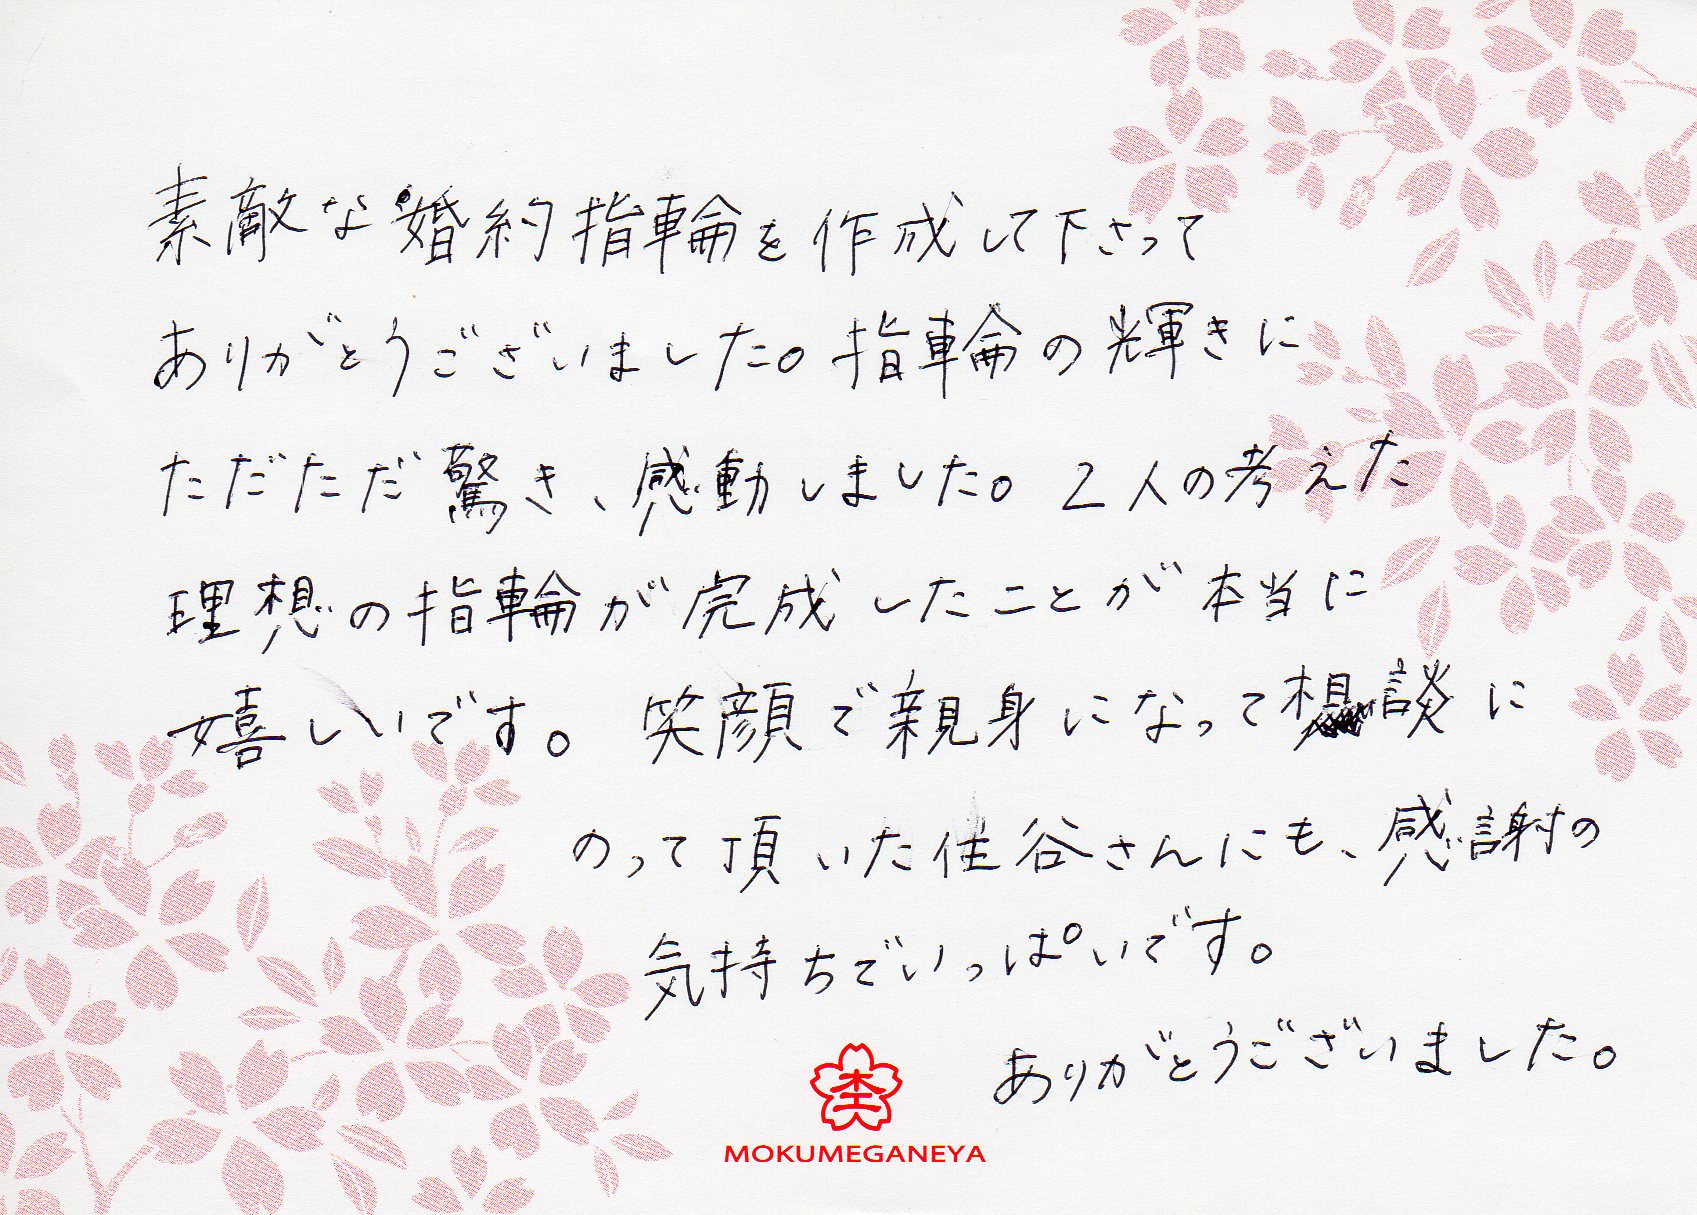 素敵な婚約指輪を作成して下さって
ありがとうございました。指輪の輝きに
ただただ驚き、感動しました。2人の考えた
理想の指輪が完成したことが本当に
嬉しいです。笑顔で親身になって相談に
のって頂いた住谷さんにも、感謝の
気持ちでいっぱいです。
ありがとうございました。
MOKUMEGANEYA